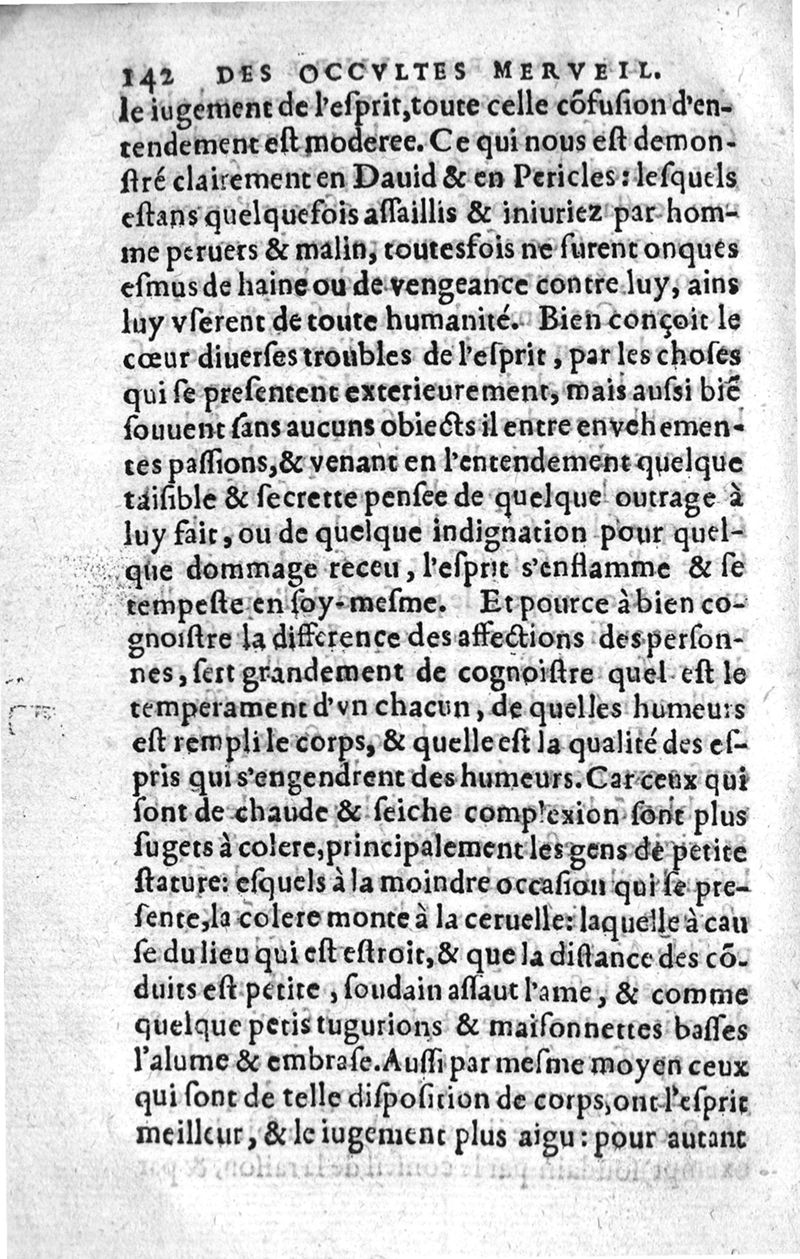 142 DES OCCVLTES MERVEIL.
le iugement de l'eſprit,toute celle cõfuſion d'en-
tendement eſt moderee. Ce qui nous eſt demon-
ſtré clairement en Dauid & en Pericles : leſquels
eſtans quelquefois aſſaillis & iniuriez par hom-
me peruers & malin, toutesfois ne furent onques
eſmus de haine ou de vengeance contre luy, ains
luy vſerent de toute humanité. Bien conçoit le
cœur diuerſes troubles de l'eſprit , par les choſes
qui ſe preſentent exterieurement, mais auſsi biẽ
ſouuent ſans aucuns obiects il entre en vehemen-
tes paſſions,& venant en l'entendement quelque
taiſible & ſecrette penſee de quelque outrage à
luy fait , ou de quelque indignation pour quel-
que dommage receu , l'eſprit s'enflamme & ſe
tempeſte en ſoy-meſme. Et pource à bien co-
gnoiſtre la difference des affections des perſon-
nes , ſert grandement de cognoiſtre quel eſt le
temperament d'vn chacun , de quelles humeurs
eſt rempli le corps, & quelle eſt la qualité des eſ-
pris qui s'engendrent des humeurs. Car ceux qui
ſont de chaude & ſeiche complexion ſont plus
ſugets à colere,principalement les gens de petite
ſtature: eſquels à la moindre occaſion qui ſe pre-
ſente,la colere monte à la ceruelle: laquelle à cau
ſe du lieu qui eſt eſtroit,& que la diſtance des cõ-
duits eſt petite , ſoudain aſſaut l'ame , & comme
quelque petis tugurions & maiſonnettes baſſes
l'alume & embraſe. Auſſi par meſme moyen ceux
qui ſont de telle diſpoſition de corps,ont l'eſprit
meilleur , & le iugement plus aigu : pour autant